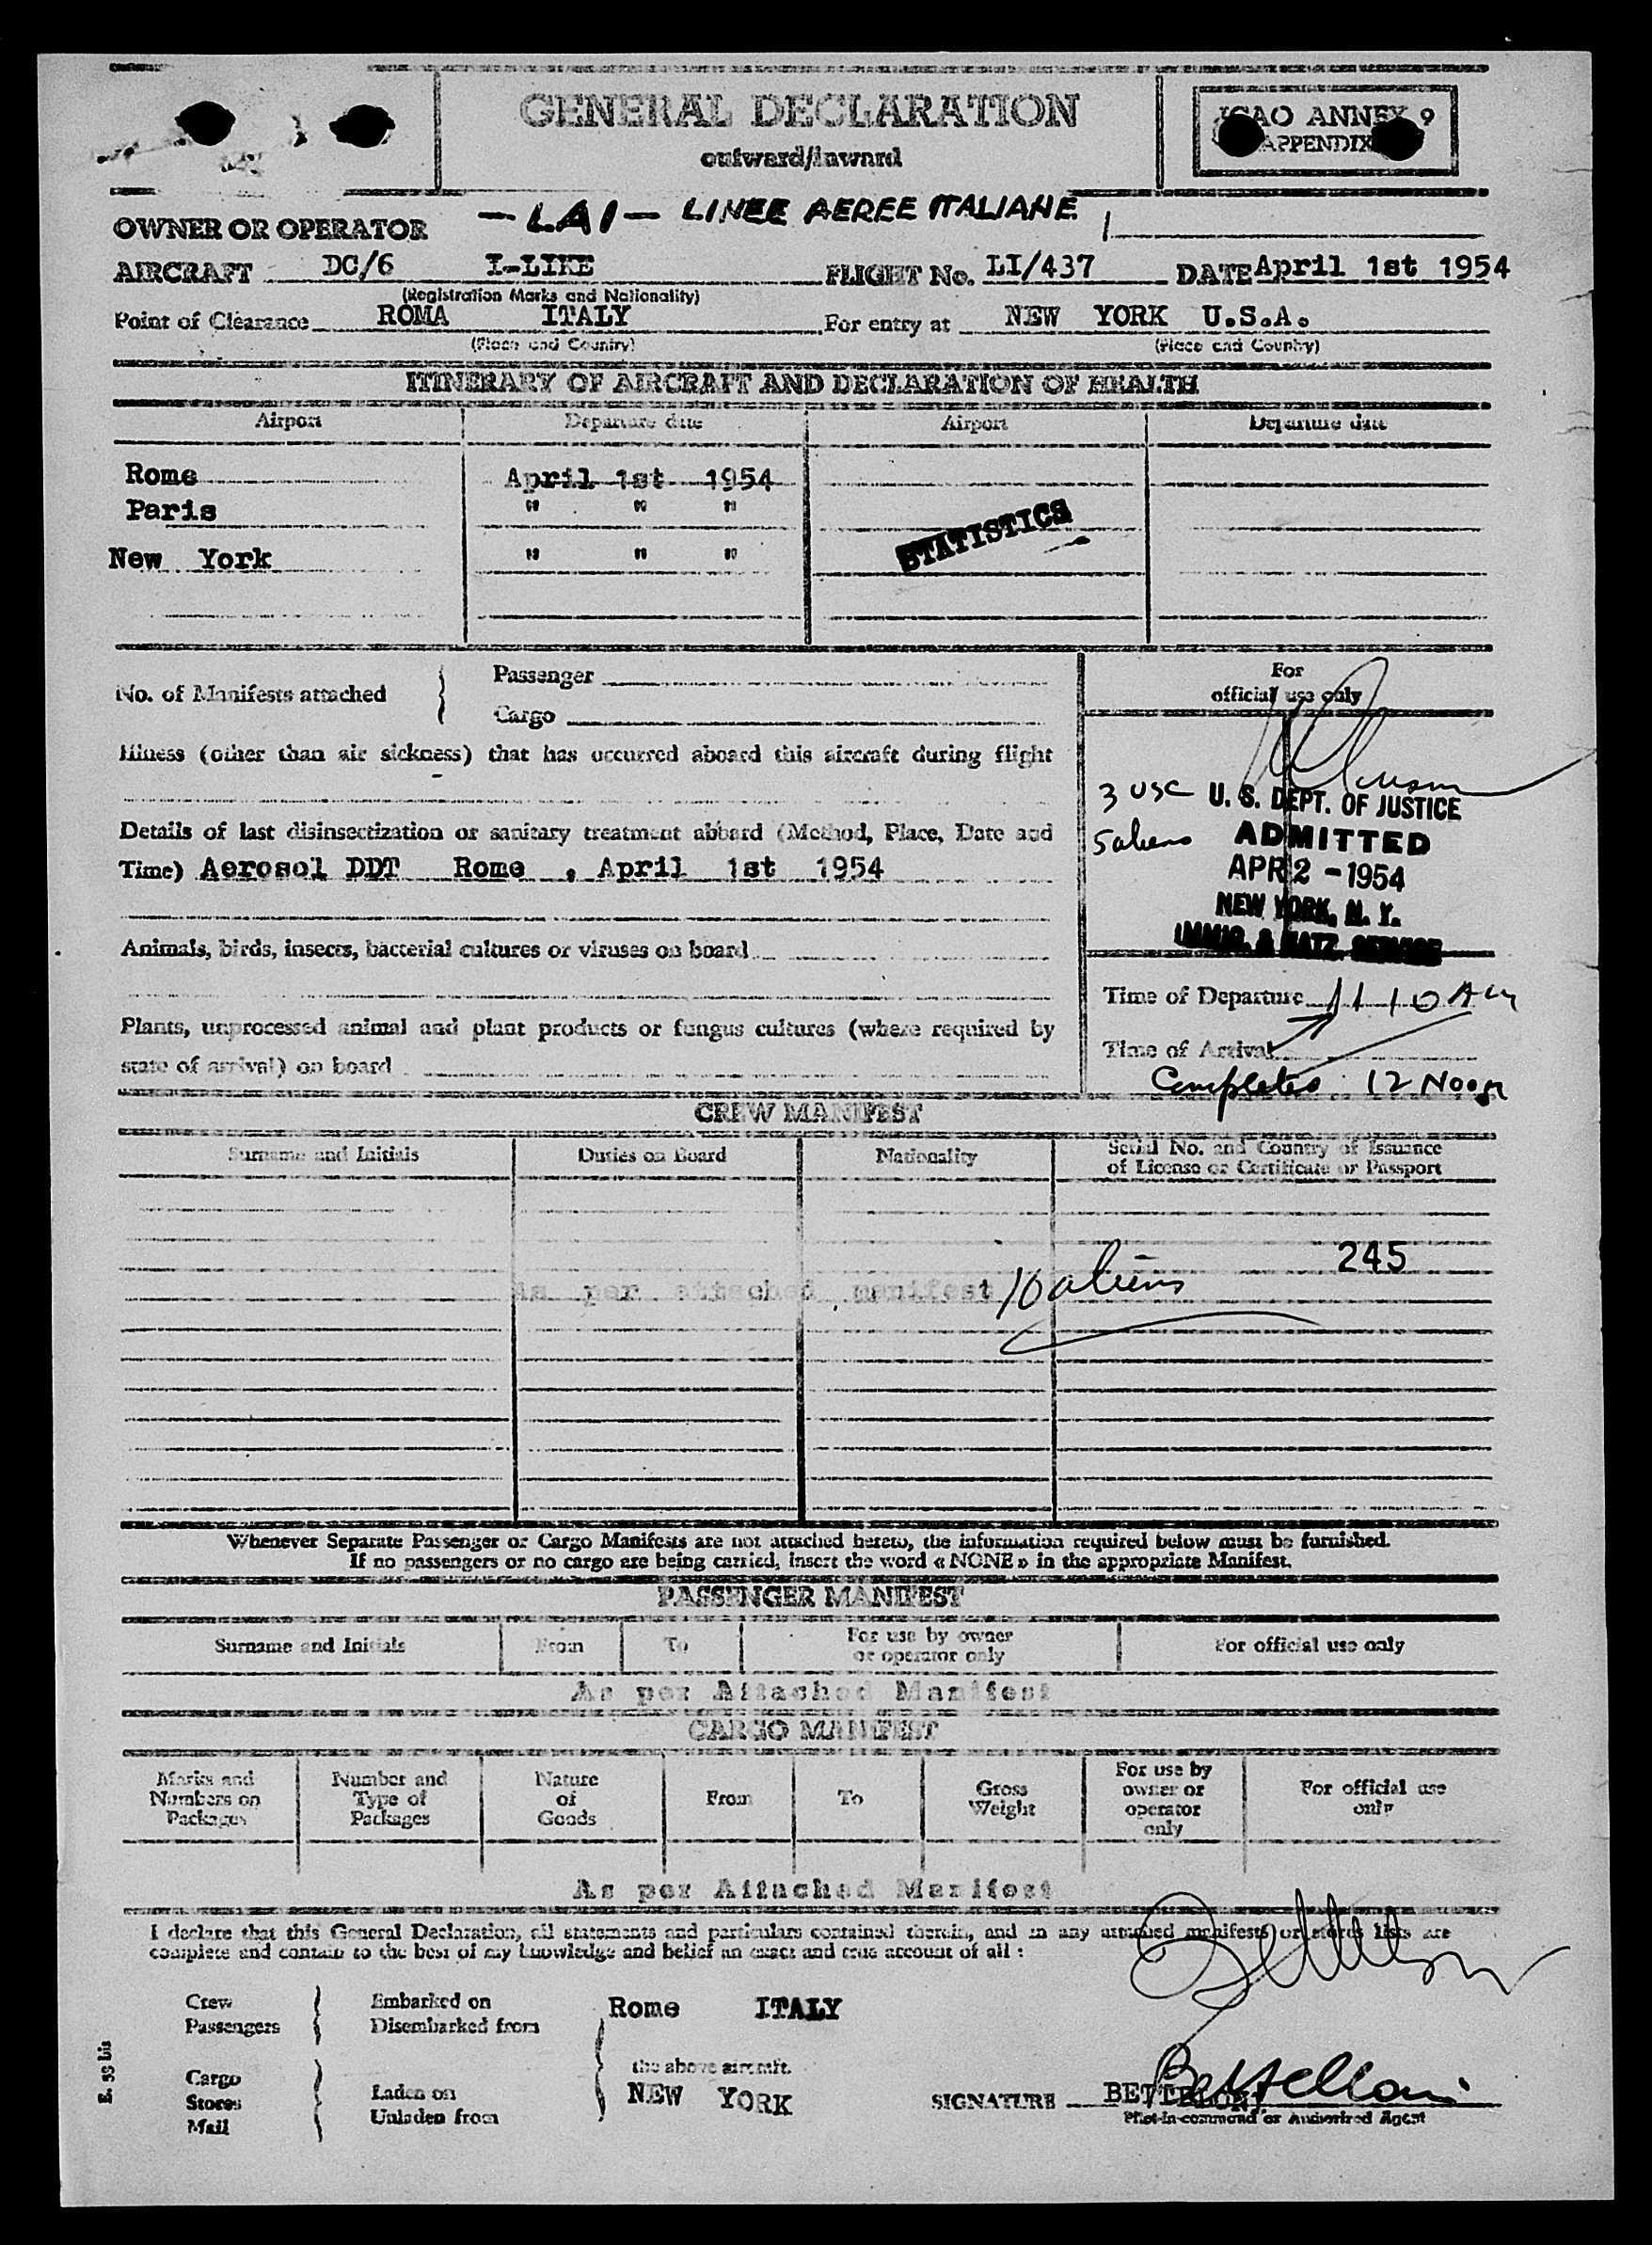 GENERAL DECLARATION
outward/inward
ICAO ANNEX 9
APPENDIX
OWNER OR OPERATOR - LAI - LINEE AEREE ITALIANE
AIRCRAFT DC/6 I-LIKE FLIGHT No. LI/437 DATE April 1st 1954
(Registration Marks and Nationality)
Point of Clearance ROMA ITALY For entry at NEW YORK U.S.A.
(Place and Country) (Place and Country)
ITINERARY OF AIRCRAFT AND DECLARATION OF HEALTH
Airport Departure date Airport Departure date
Rome April 1st 1954
Paris " " "
STATISTICS
New York " " "
No. of Manifests attached
Passenger
Cargo
For
official use only
Illness (other than air sickness) that has occurred aboard this aircraft during flight
-
Details of last disinsectization or sanitary treatment abbard (Method, Place, Date and
Time) Aerosol DDT Rome , April 1st 1954
3 USC
5 aliens
U. S. DEPT. OF JUSTICE
ADMITTED
APR 2 - 1954
NEW YORK, N. Y.
IMMIG. & NATZ. SERVICE
Animals, birds, insects, bacterial cultures or viruses on board
Plants, unprocessed animal and plant products or fungus cultures (where required by
state of arrival) on board
Time of Departure 11 10 AM
Time of Arrival
Completed 12 Noon
CREW MANIFEST
Surname and Initials Duties on Board Nationality Serial No. and Country of Issuance
of License or Certificate or Passport
245
As per attached manifest 10 aliens
Whenever Separate Passenger or Cargo Manifests are not attached hereto, the information required below must be furnished.
If no passengers or no cargo are being carried, insert the word « NONE » in the appropriate Manifest.
PASSENGER MANIFEST
Surname and Initials From To For use by owner
or operator only For official use only
As per Attached Manifest
CARGO MANIFEST
Marks and
Numbers on
Packages
Number and
Type of
Packages
Nature
of
Goods
From
To
Gross
Weight
For use by
owner or
operator
only
For official use
only
As per Attached Manifest
I declare that this General Declaration, all statements and particulars contained therein, and in any attached manifests or stores lists are
complete and contain to the best of my knowledge and belief an exact and true account of all :
Crew
Passengers
Embarked on
Disembarked from
Rome ITALY
Cargo
Stores
Mail
Laden on
Unladen from
the above aircraft.
NEW YORK
SIGNATURE BETTELLONI
Pilot-in-command or Authorized Agent
E. 59 bis